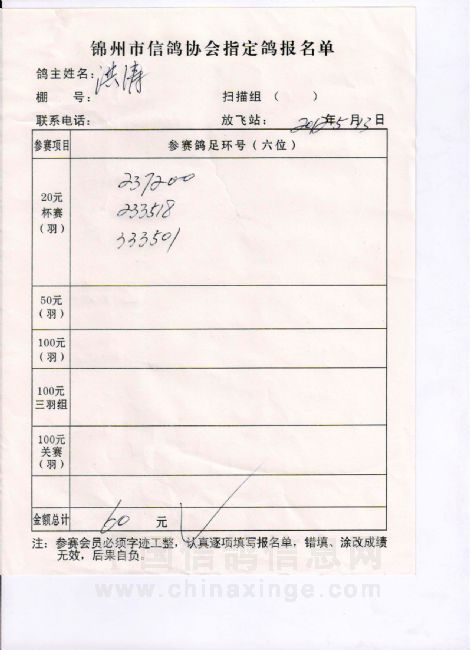 锦州市信鸽协会指定鸽报名单
鸽主姓名：洪涛
棚 号： 扫描组 （ ）
联系电话： 放飞站： 2012年5月13日
参赛项目 参赛鸽足环号（六位）
20元
杯赛
（羽）
237200
233518
333501
50元
（羽）
100元
（羽）
100元
三羽组
100元
关赛
（羽）
金额总计 60 元
注：参赛会员必须字迹工整，认真逐项填写报名单，错填、涂改成绩
无效，后果自负。
中国信鸽信息网
www.chinaxinge.com